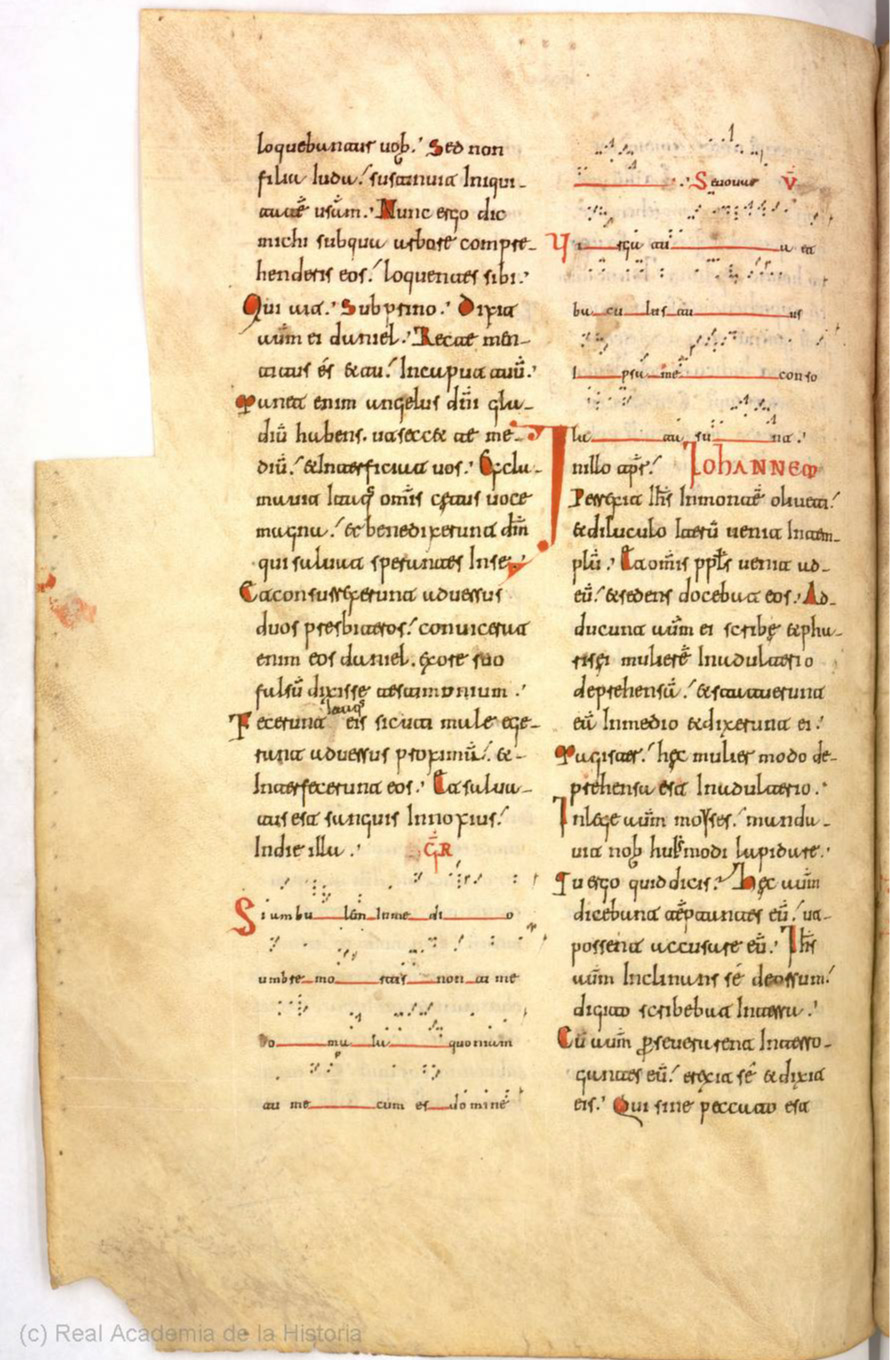 loquebantur uob. Sed non
filia iuda! sustinuit Iniqui-
tatē urām. Nunc ergo dic
michi sub qua arbore compre-
henderis eos! loquentes sibi.
Qui ait. Sub prino. Dixit
aūm ei daniel. Recte men-
titus es & tu! In caput tuū.
Manet enim angelus dn̄i gla-
diū habens. ut secet te me-
diū! & Interficiat uos. Excla-
mauit Itaq; om̄is cetus uoce
magna! & benedixerunt dm̄
qui saluat sperantes In se.
Et consurrexerunt aduersus
duos presbiteros! conuicerat
enim eos daniel. ex ore suo
falsū dixisse testimonium.
Fecerunt itaq; eis sicuti male ege-
rant aduersus proximū. & -
Interfecerunt eos. Et salua-
tus est sanguis Innoxius!
In die illa. GR
Si ambu lem In me di o
umbre mo rtis non ti me
bo ma la quoniam
tu me cum es domine
Se tuus V̄
Vi rga tu a et
ba cu lus tu us
I psa me conso
la ta su nt.
In illo tp̄r! IOHANNEM
Perrexit Ih̄s In montē oliueti!
& diluculo Iterū uenit In tem-
plū. Et om̄is pp̄ls uenit ad-
eū! & sedens docebat eos. Ad-
ducunt aūm ei scribę & pha-
risęi mulierē In adulterio
deprehensā! & statuerunt
eā In medio & dixerunt ei!
Magister! hęc mulier modo de-
prehensa est In adulterio.
In lege aūm moyses! manda-
uit nob hui'modi lapidare.
Tu ergo quid dicis? Hęc aūm
dicebant teptantes eū! ut-
possent accusare eū. Ih̄s
aūm Inclinans se deorsum!
digito scribebat In terra.
Cū aūm pseuerarent Interro-
gantes eū! erexit se & dixit
eis. Qui sine peccato est
(c) Real Academia de la Historia